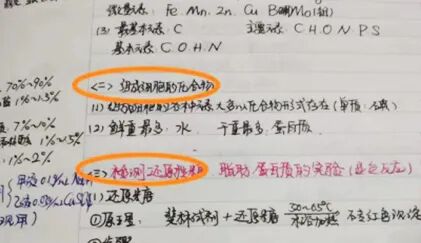 微量元素: Fe. Mn. Zn. Cu B Mo
(3) 最基本元素: C 主要元素: C H O N P S
基本元素: C O H N
<二> 组成细胞的化合物
(1) 组成细胞的各种元素大多以化合物形式存在
(2) 鲜重最多: 水. 干重最多: 蛋白质.
<三> 检测还原性糖 脂肪. 蛋白质的实验 (显色反应)
(1) 还原糖
①原理: 斐林试剂 + 还原糖 50~65℃ 水浴加热 砖红色沉淀
②步骤
70%~90%
1%~1.5%
7%~10%
1%~1.5%
1%~2%